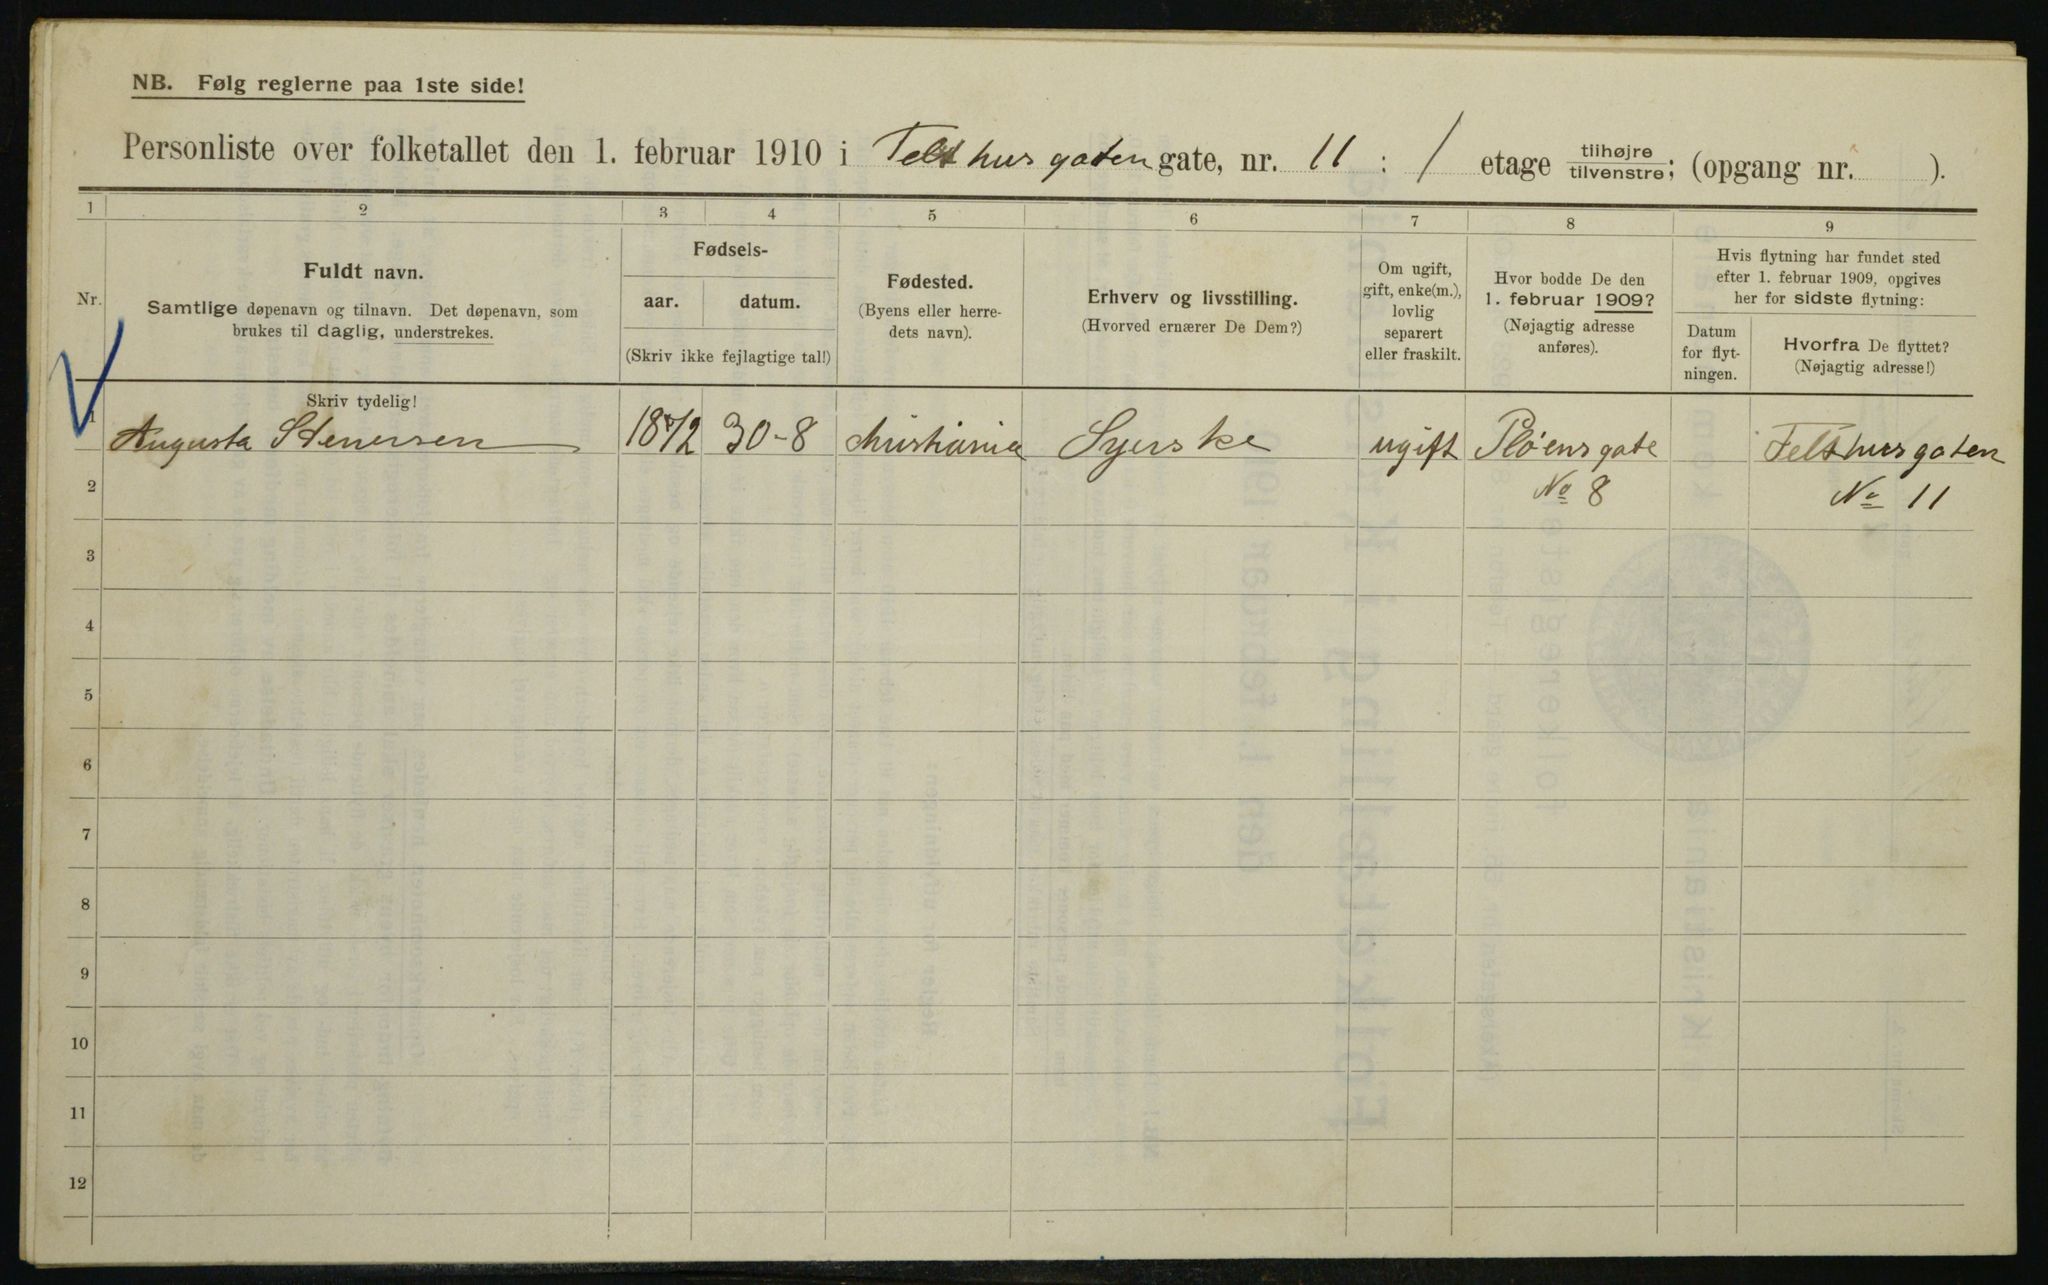 NB. Følg reglerne paa 1ste side!
Personliste over folketallet den 1. februar 1910 i Telthusgaten gate, nr. 11 : 1 etage tilhøjre tilvenstre; (opgang nr. ).
1 2 3 4 5 6 7 8 9
Nr.
Fuldt navn.
Samtlige døpenavn og tilnavn. Det døpenavn, som
brukes til daglig, understrekes.
Fødsels-
aar. datum.
(Skriv ikke fejlagtige tal!)
Fødested.
(Byens eller herre-
dets navn).
Erhverv og livsstilling.
(Hvorved ernærer De Dem?)
Om ugift,
gift, enke(m.),
lovlig
separert
eller fraskilt.
Hvor bodde De den
1. februar 1909?
(Nøjagtig adresse
anføres).
Hvis flytning har fundet sted
efter 1. februar 1909, opgives
her for sidste flytning:
Datum
for flyt-
ningen.
Hvorfra De flyttet?
(Nøjagtig adresse!)
Skriv tydelig!
1 Augusta Stenersen 1872 30-8 Christiania Syerske ugift Pløensgate Telthusgaten
2 No 8 No 11
3
4
5
6
7
8
9
10
11
12